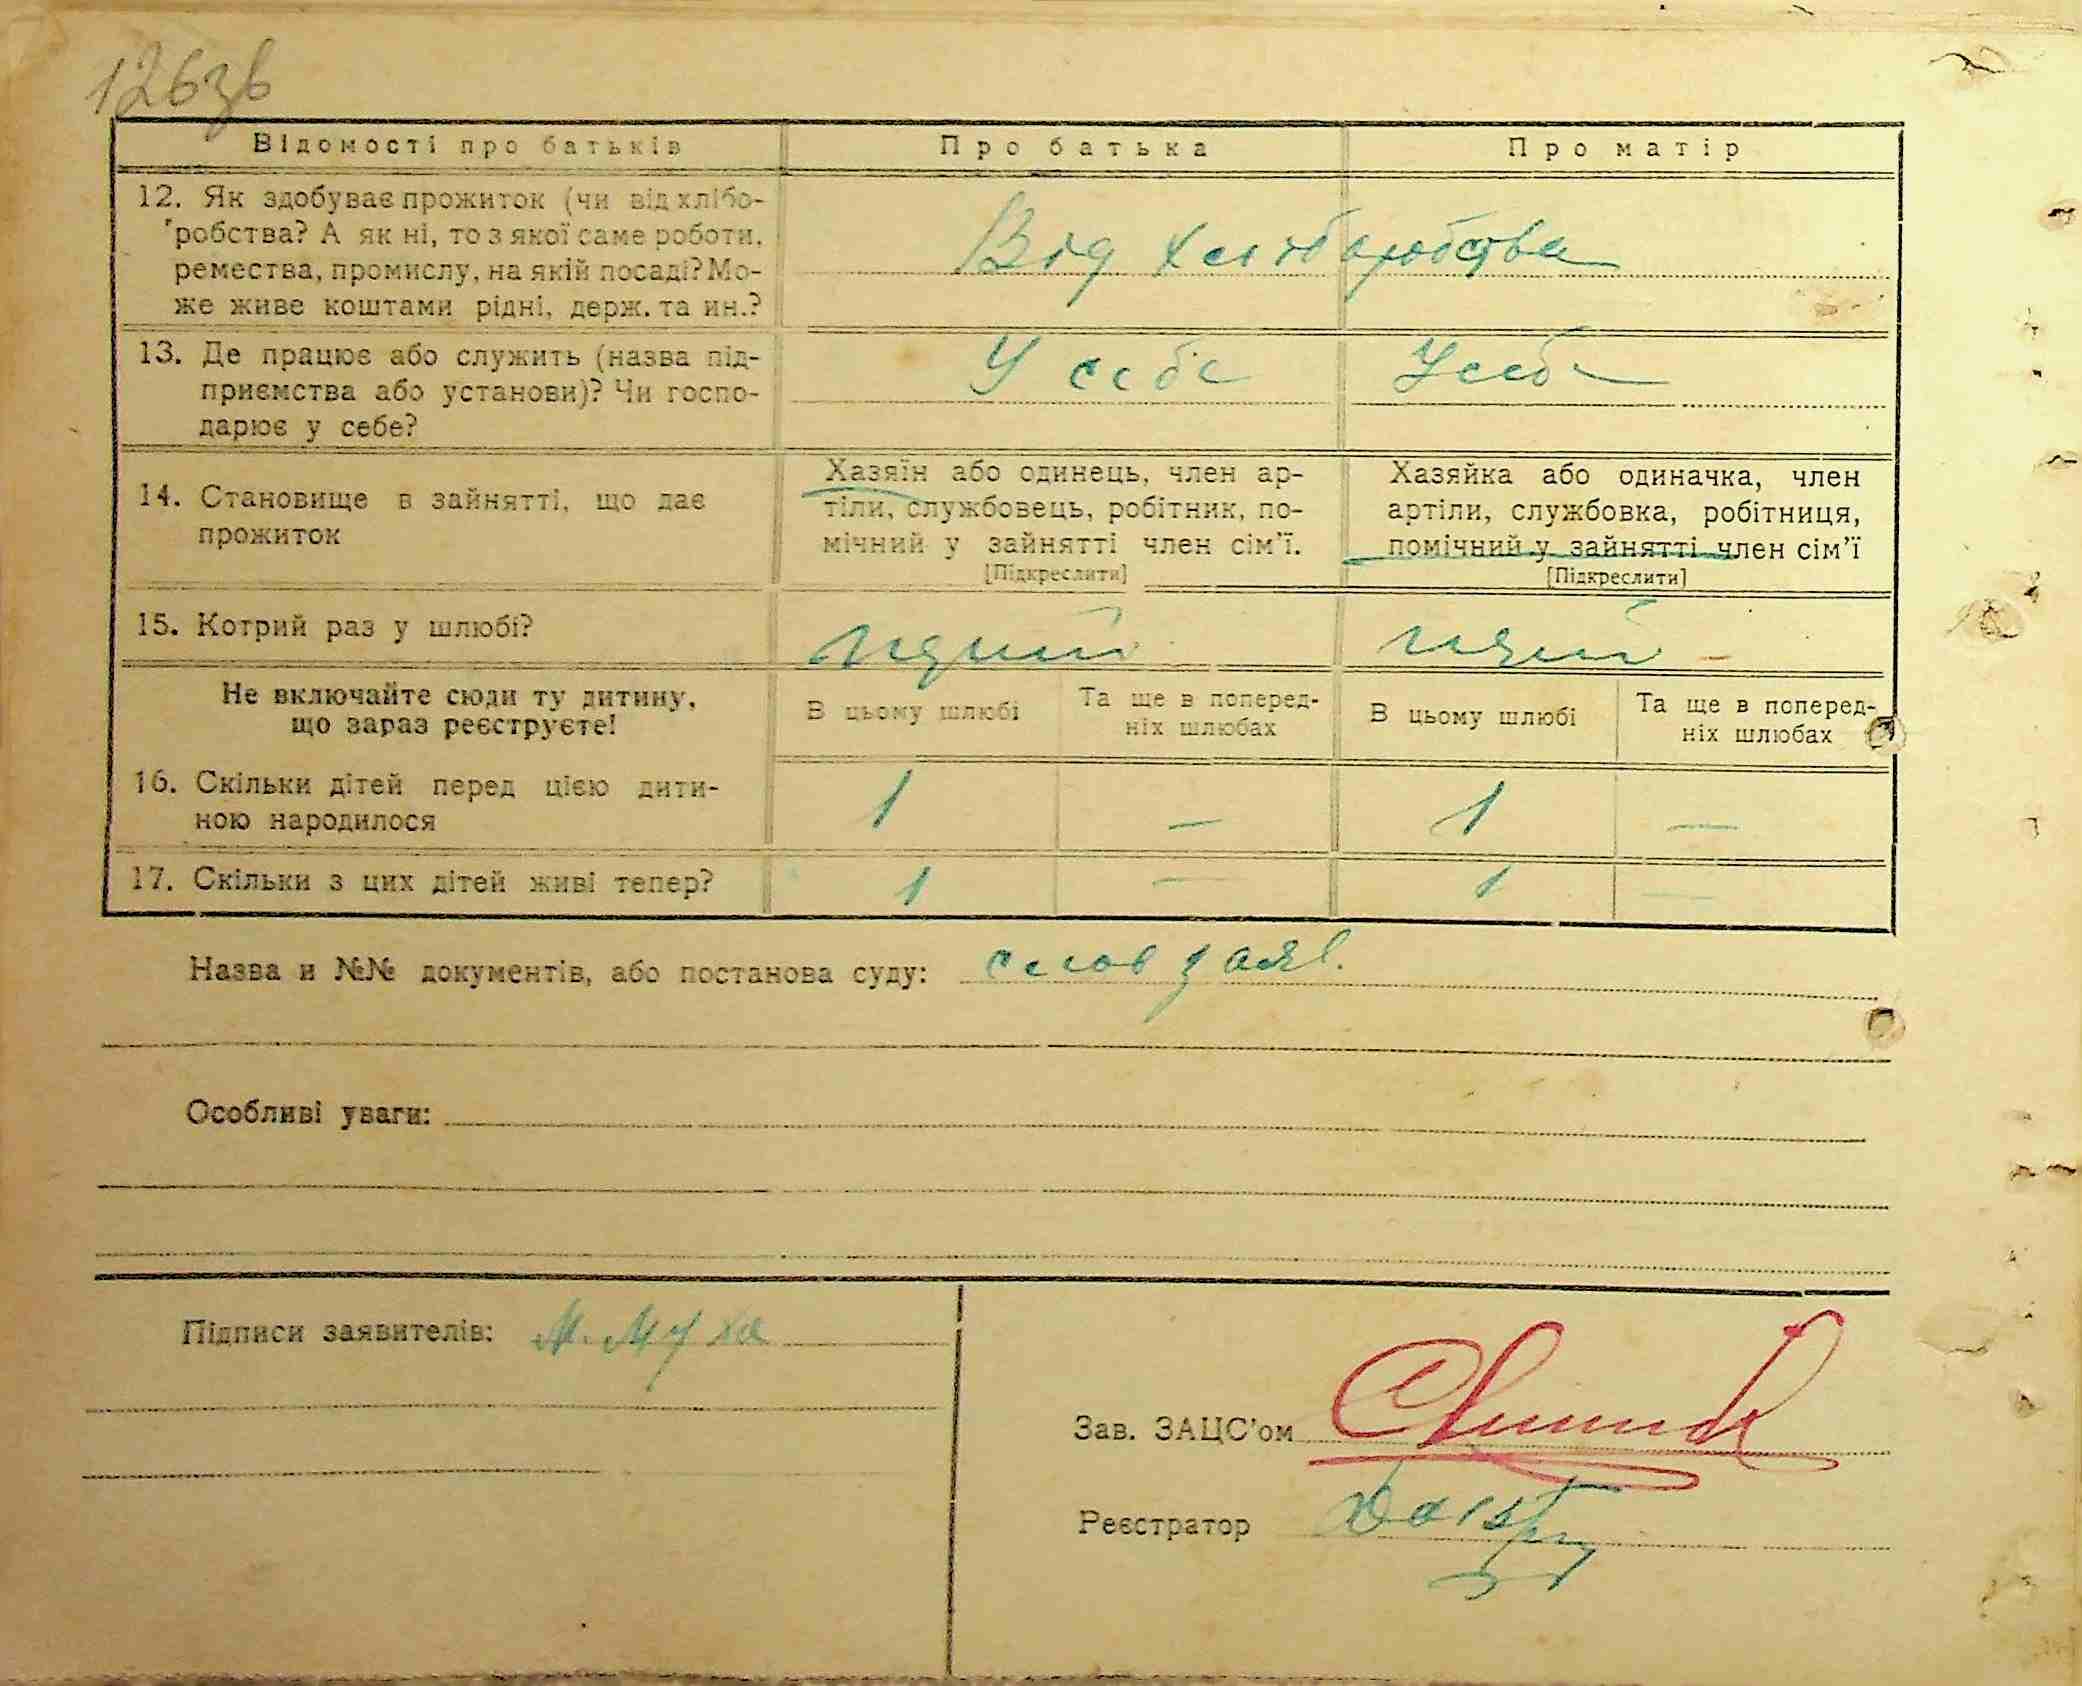 126зв
Відомості про батьків
Про батька
Про матір
12. Як здобуває прожиток (чи від хлібо-
робства? А як ні, то з якої саме роботи,
ремества, промислу, на якій посаді? Мо-
же живе коштами рідні, держ. та ин.?
Від хліборобства
13. Де працює або служить (назва під-
приємства або установи)? Чи госпо-
дарює у себе?
У себе
У себе
14. Становище в зайнятті, що дає
прожиток
Хазяїн або одинець, член ар-
тіли, службовець, робітник, по-
мічний у зайнятті член сім'ї.
[Підкреслити]
Хазяйка або одиначка, член
артіли, службовка, робітниця,
помічний у зайнятті член сім'ї
[Підкреслити]
15. Котрий раз у шлюбі?
Не включайте сюди ту дитину,
що зараз реєструєте!
В цьому шлюбі
Та ще в поперед-
ніх шлюбах
В цьому шлюбі
Та ще в поперед-
ніх шлюбах
16. Скільки дітей перед цією дити-
ною народилося
1 — 1 —
17. Скільки з цих дітей живі тепер?
1 — 1 —
Назва и №№ документів, або постанова суду: слов заяв.
Особливі уваги:
Підписи заявителів: М. Муха
Зав. ЗАЦС'ом
Реєстратор